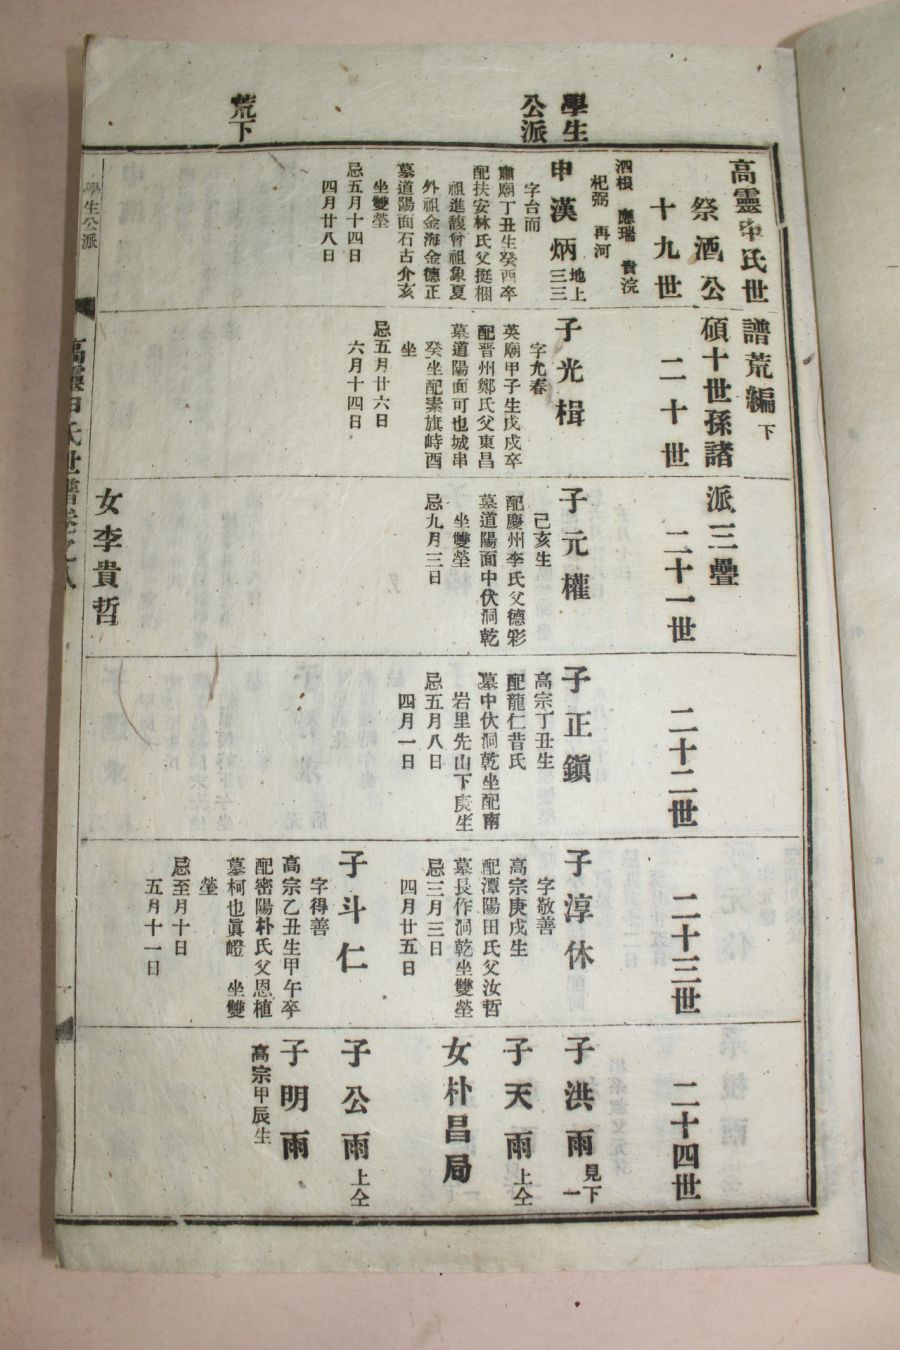 學生
公派
荒下
高靈申氏世譜荒編下
祭酒公碩十世孫諸派三疊
十九世
二十世
二十一世
二十二世
二十三世
二十四世
泗根 應瑞 貴浣
杞弼 再河
申漢炳 地上三三
字台而
肅廟丁丑生癸酉卒
配扶安林氏父挺梱
祖進馥曾祖象夏
外祖金海金德正
墓道陽面石古介亥
坐雙塋
忌五月十四日
四月廿八日
子光楫
字允春
英廟甲子生戊戌卒
配晋州鄭氏父東昌
墓道陽面可也城串
癸坐配素旗峙酉
坐
忌五月廿六日
六月十四日
子元權
己亥生
配慶州李氏父德彩
墓道陽面中伏洞乾
坐雙塋
忌九月三日
女李貴哲
子正鎭
高宗丁丑生
配龍仁昔氏
墓中伏洞乾坐配南
岩里先山下庚坐
忌五月八日
四月一日
子淳休
字敬善
高宗庚戌生
配潭陽田氏父汝哲
墓長作洞乾坐雙塋
忌三月三日
四月廿五日
子斗仁
字得善
高宗乙丑生甲午卒
配密陽朴氏父恩植
墓柯也眞嶝 坐雙
塋
忌至月十日
五月十一日
子洪雨 見下一
子天雨 上仝
女朴昌局
子公雨 上仝
子明雨
高宗甲辰生
學生公派
高靈申氏世譜卷之八